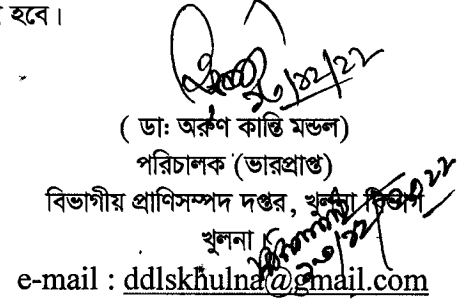 হবে।
২৬/১২/২২
( ডা: অরুণ কান্তি মন্ডল)
পরিচালক (ভারপ্রাপ্ত)
বিভাগীয় প্রাণিসম্পদ দপ্তর, খুলনা বিভাগ
খুলনা।
e-mail : ddlskhulna@gmail.com